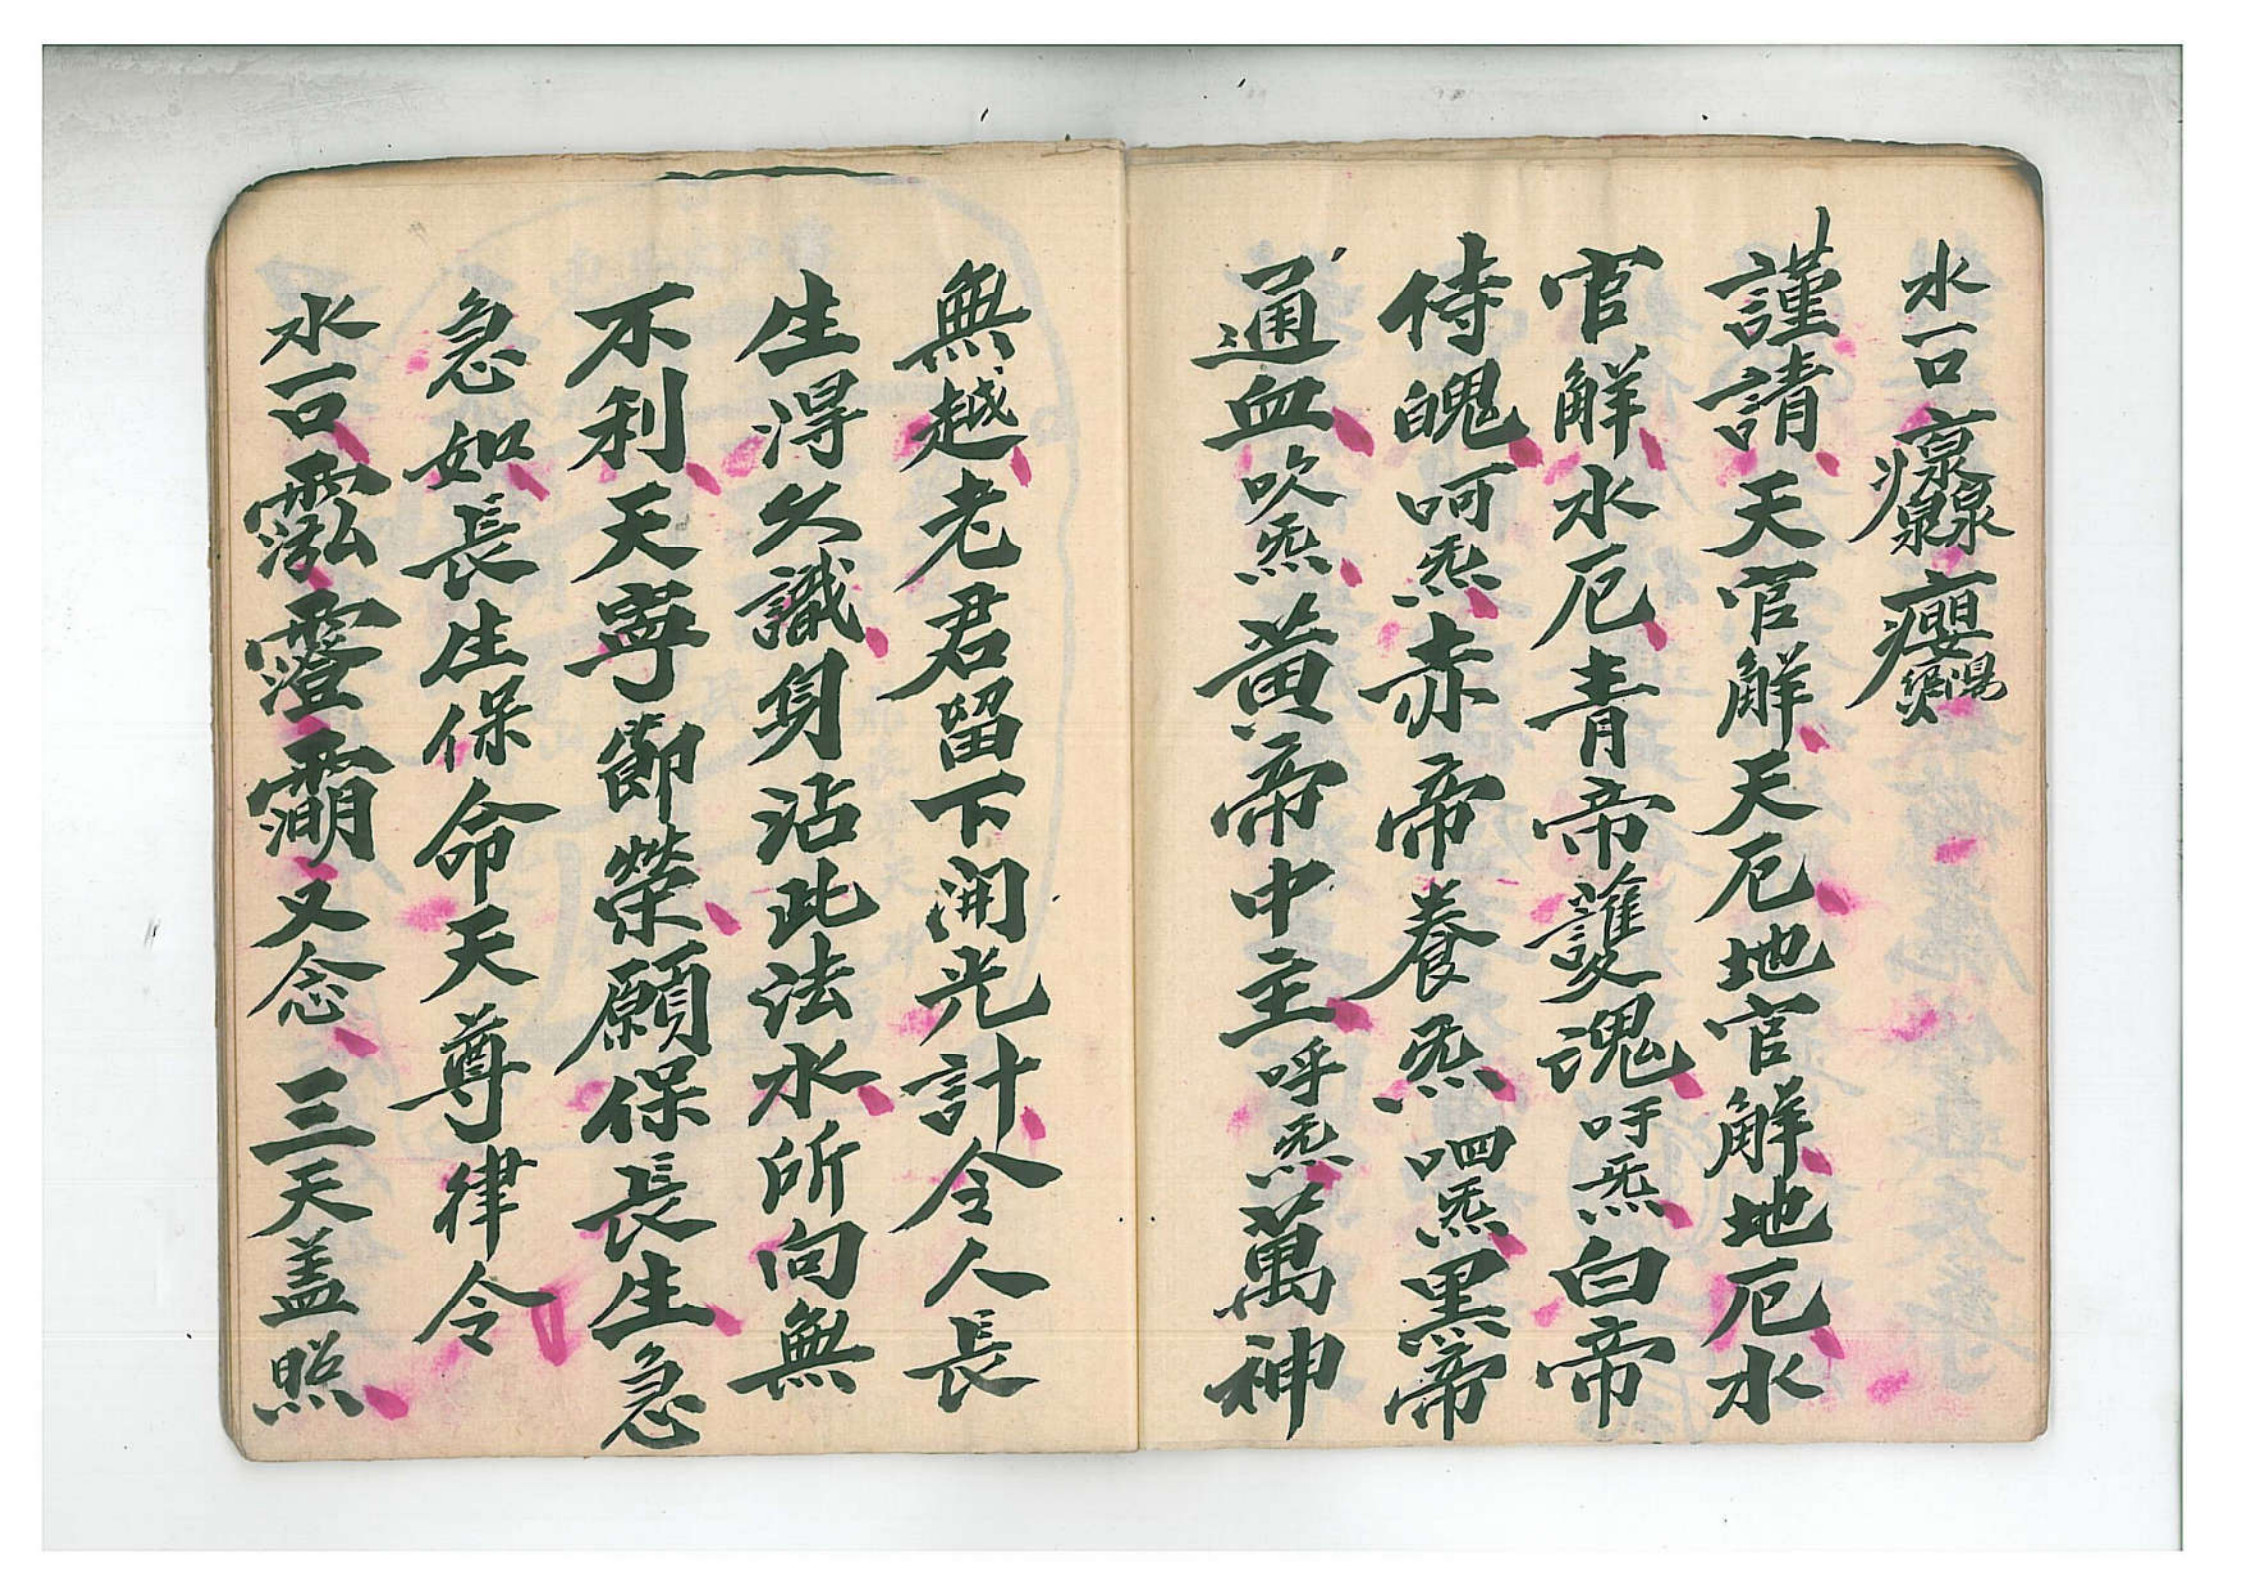 水召
謹請天官解天厄地官解地厄水
官解水厄青帝護魂吁炁白帝
侍魄呵炁赤帝養炁呬炁黑帝
通血吹炁黃帝中主呼炁萬神
無越老君留下開光計令人長
生得久識身沾此法水所向無
不利天寧節榮願保長生急
急如長生保命天尊律令
水召又念三天盖照